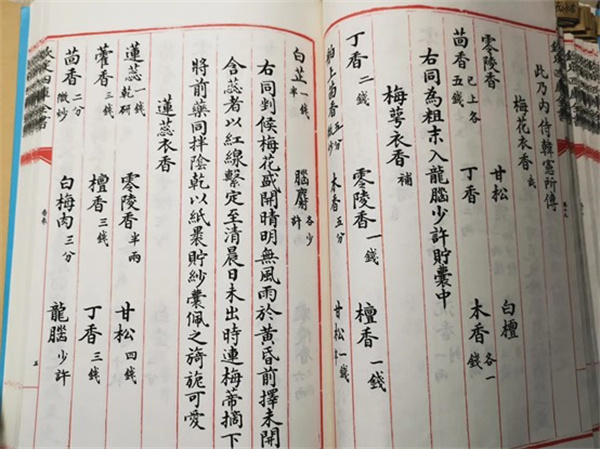 此乃內侍韓憲所傳
梅花衣香 武
零陵香 甘松 白檀
茴香 已上各五錢 丁香 木香 各一錢
右同為粗末入龍腦少許貯囊中
梅蕚衣香 補
丁香 二錢 零陵香 一錢 檀香 一錢
舶上茴香 五分微炒 木香 五分 甘松 一錢半
白芷 一錢半 腦麝 各少許
右同剉候梅花盛開晴明無風雨於黃昏前擇未開
含蕊者以紅線繫定至清晨日未出時連梅蒂摘下
將前藥同拌陰乾以紙裹貯紗囊佩之旖旎可愛
蓮蕊衣香
蓮蕊 一錢乾研 零陵香 半兩 甘松 四錢
藿香 三錢 檀香 三錢 丁香 三錢
茴香 二分微炒 白梅肉 三分 龍腦 少許
欽定四庫全書 五